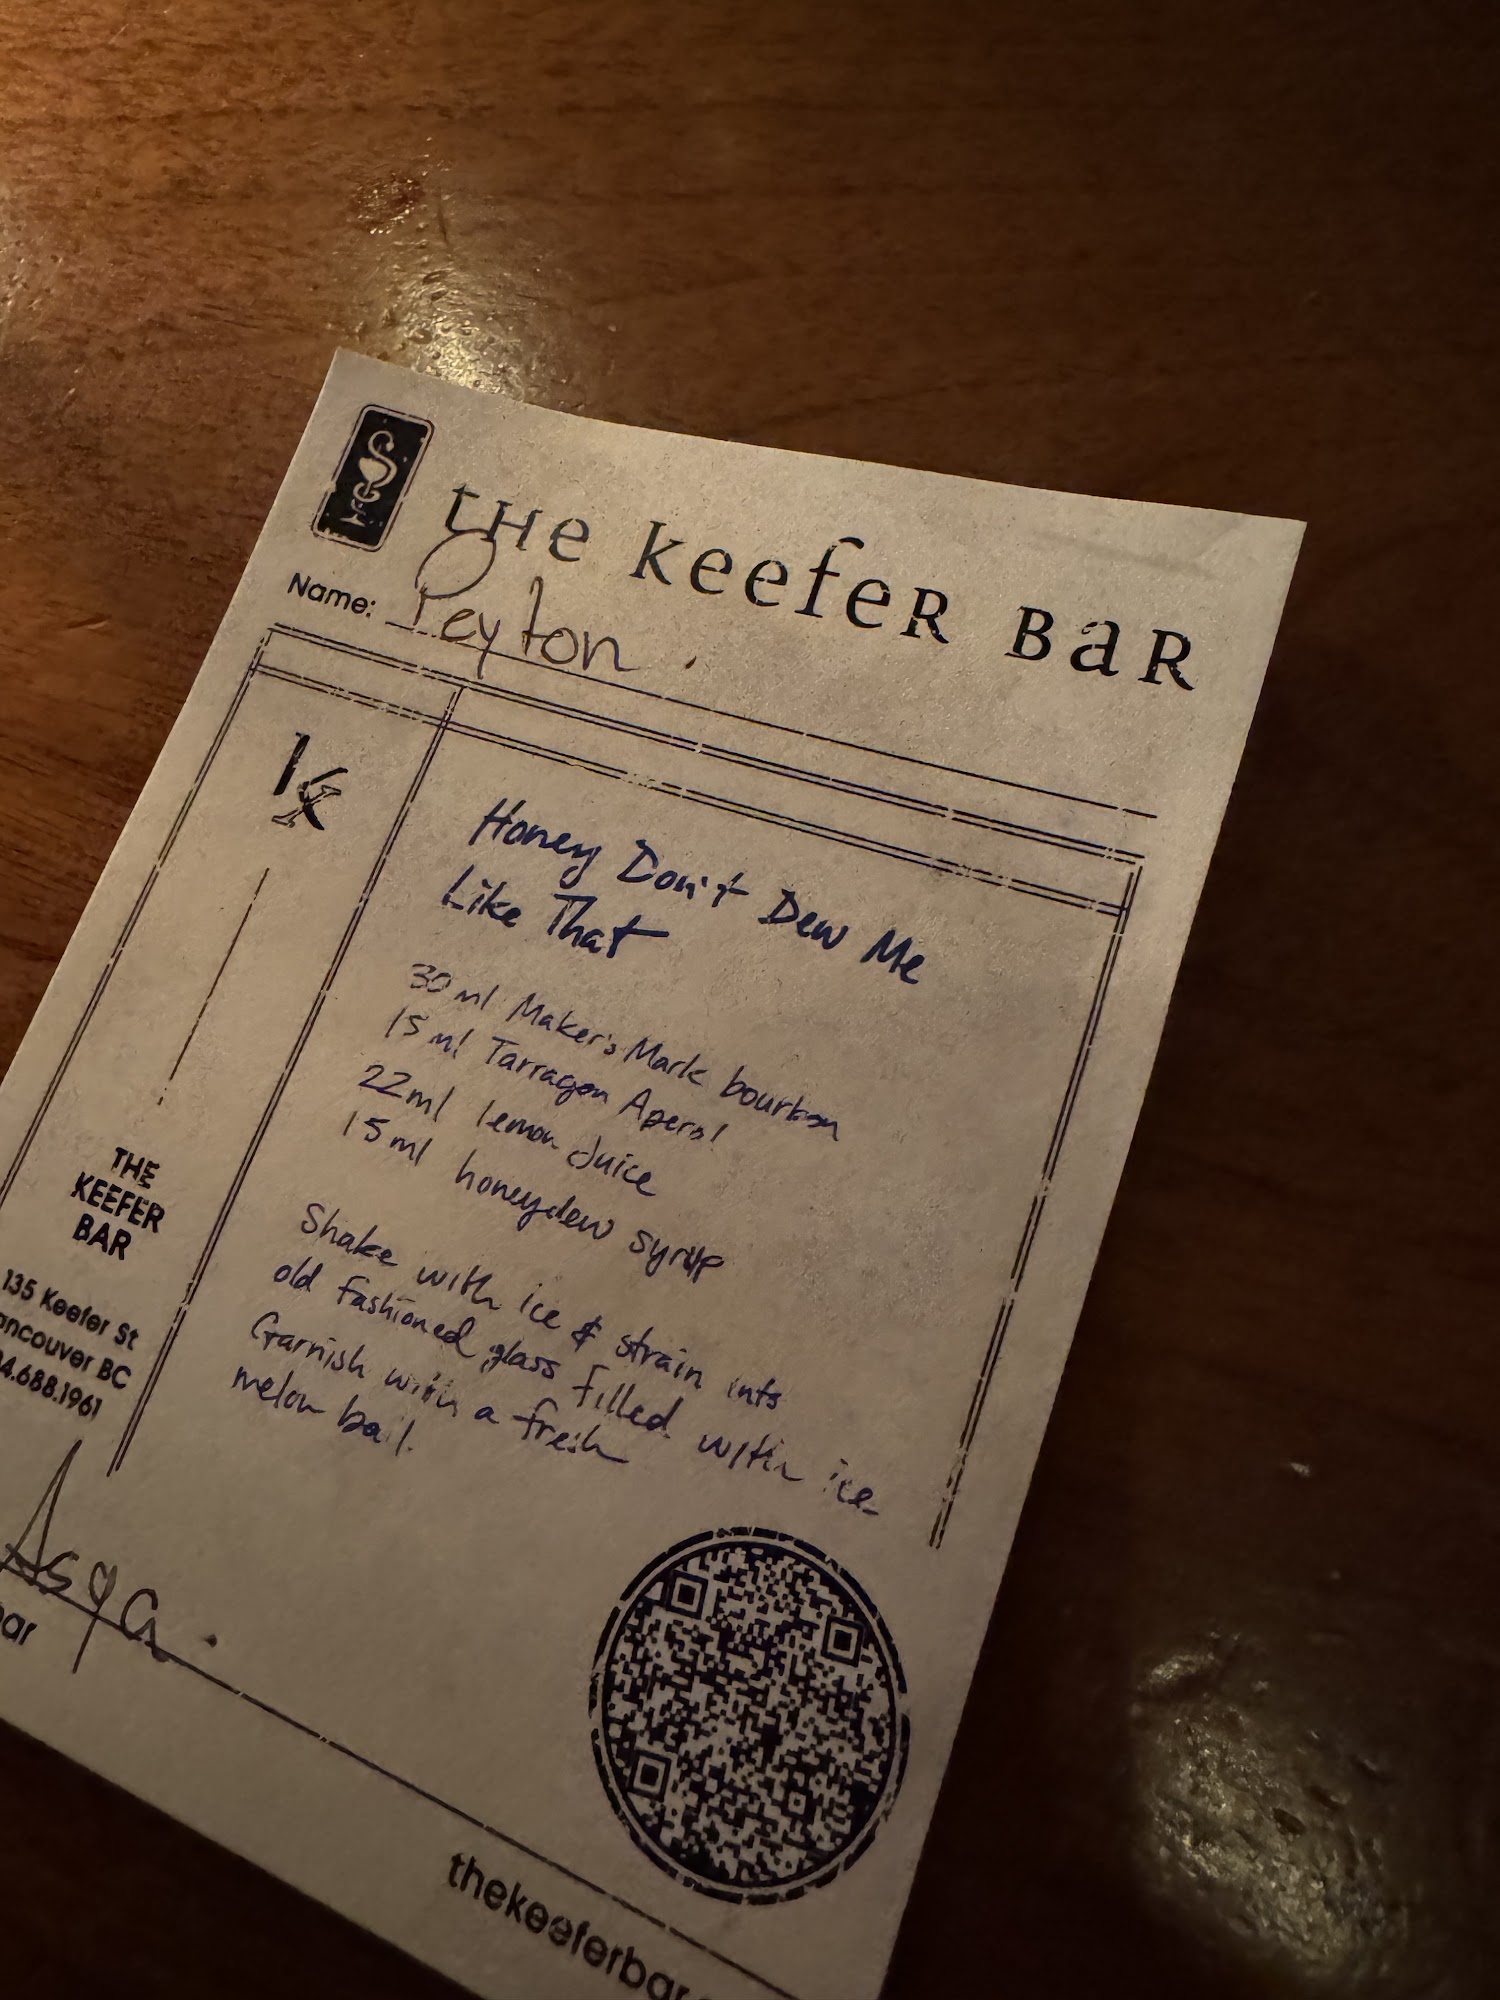 THE KEEFER BAR
Name: Peyton
Honey Don't Dew Me
Like That
30 ml Maker's Mark bourbon
15 ml Tarragon Aperol
22ml lemon Juice
15 ml honeydew syrup
Shake with ice & strain into
old fashioned glass filled with ice
Garnish with a fresh
melon ball.
K
THE
KEEFER
BAR
135 Keefer St
ancouver BC
4.688.1961
ar
thekeeferbar